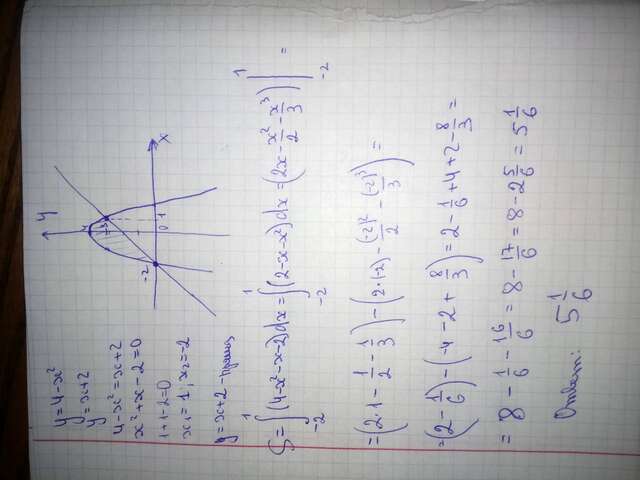 y=4-x²
y=x+2
4-x²=x+2
x²+x-2=0
1+1-2=0
x₁=1; x₂=-2
y=x+2-прямая
y
x
4
1
0
1
-2
S=∫₋₂¹(4-x²-x-2)dx=∫₋₂¹(2-x-x²)dx=(2x-x²/2-x³/3)|₋₂¹=
=(2·1-1/2-1/3)-(2·(-2)-(-2)²/2-(-2)³/3)=
=(2-1/6)-(-4-2+8/3)=2-1/6+4+2-8/3=
=8-1/6-16/6=8-17/6=8-2 5/6=5 1/6
Ответ: 5 1/6